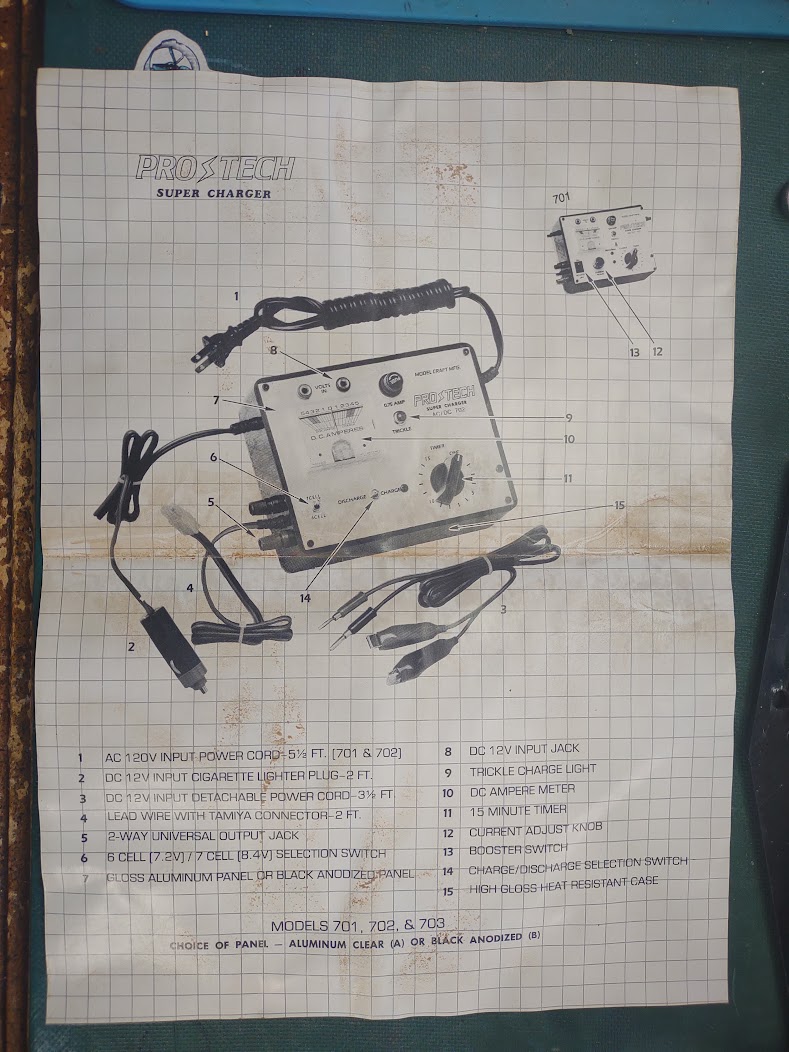 PRO TECH
SUPER CHARGER
701
1
8
VOLTS
IN
MODEL CRAFT MFG.
7
0.75 AMP
PRO TECH
SUPER CHARGER
AC/DC 702
13
12
5 4 3 2 1 0 1 2 3 4 5
D.C. AMPERES
TRICKLE
9
10
TIMER
15
6
11
DISCHARGE
CHARGE
15
5
4
14
3
2
1 AC 120V INPUT POWER CORD-5½ FT. (701 & 702)
2 DC 12V INPUT CIGARETTE LIGHTER PLUG-2 FT.
3 DC 12V INPUT DETACHABLE POWER CORD-3½ FT.
4 LEAD WIRE WITH TAMIYA CONNECTOR-2 FT.
5 2-WAY UNIVERSAL OUTPUT JACK
6 6 CELL (7.2V) / 7 CELL (8.4V) SELECTION SWITCH
7 GLOSS ALUMINUM PANEL OR BLACK ANODIZED PANEL
8 DC 12V INPUT JACK
9 TRICKLE CHARGE LIGHT
10 DC AMPERE METER
11 15 MINUTE TIMER
12 CURRENT ADJUST KNOB
13 BOOSTER SWITCH
14 CHARGE/DISCHARGE SELECTION SWITCH
15 HIGH GLOSS HEAT RESISTANT CASE
MODELS 701, 702, & 703
CHOICE OF PANEL – ALUMINUM CLEAR (A) OR BLACK ANODIZED (B)